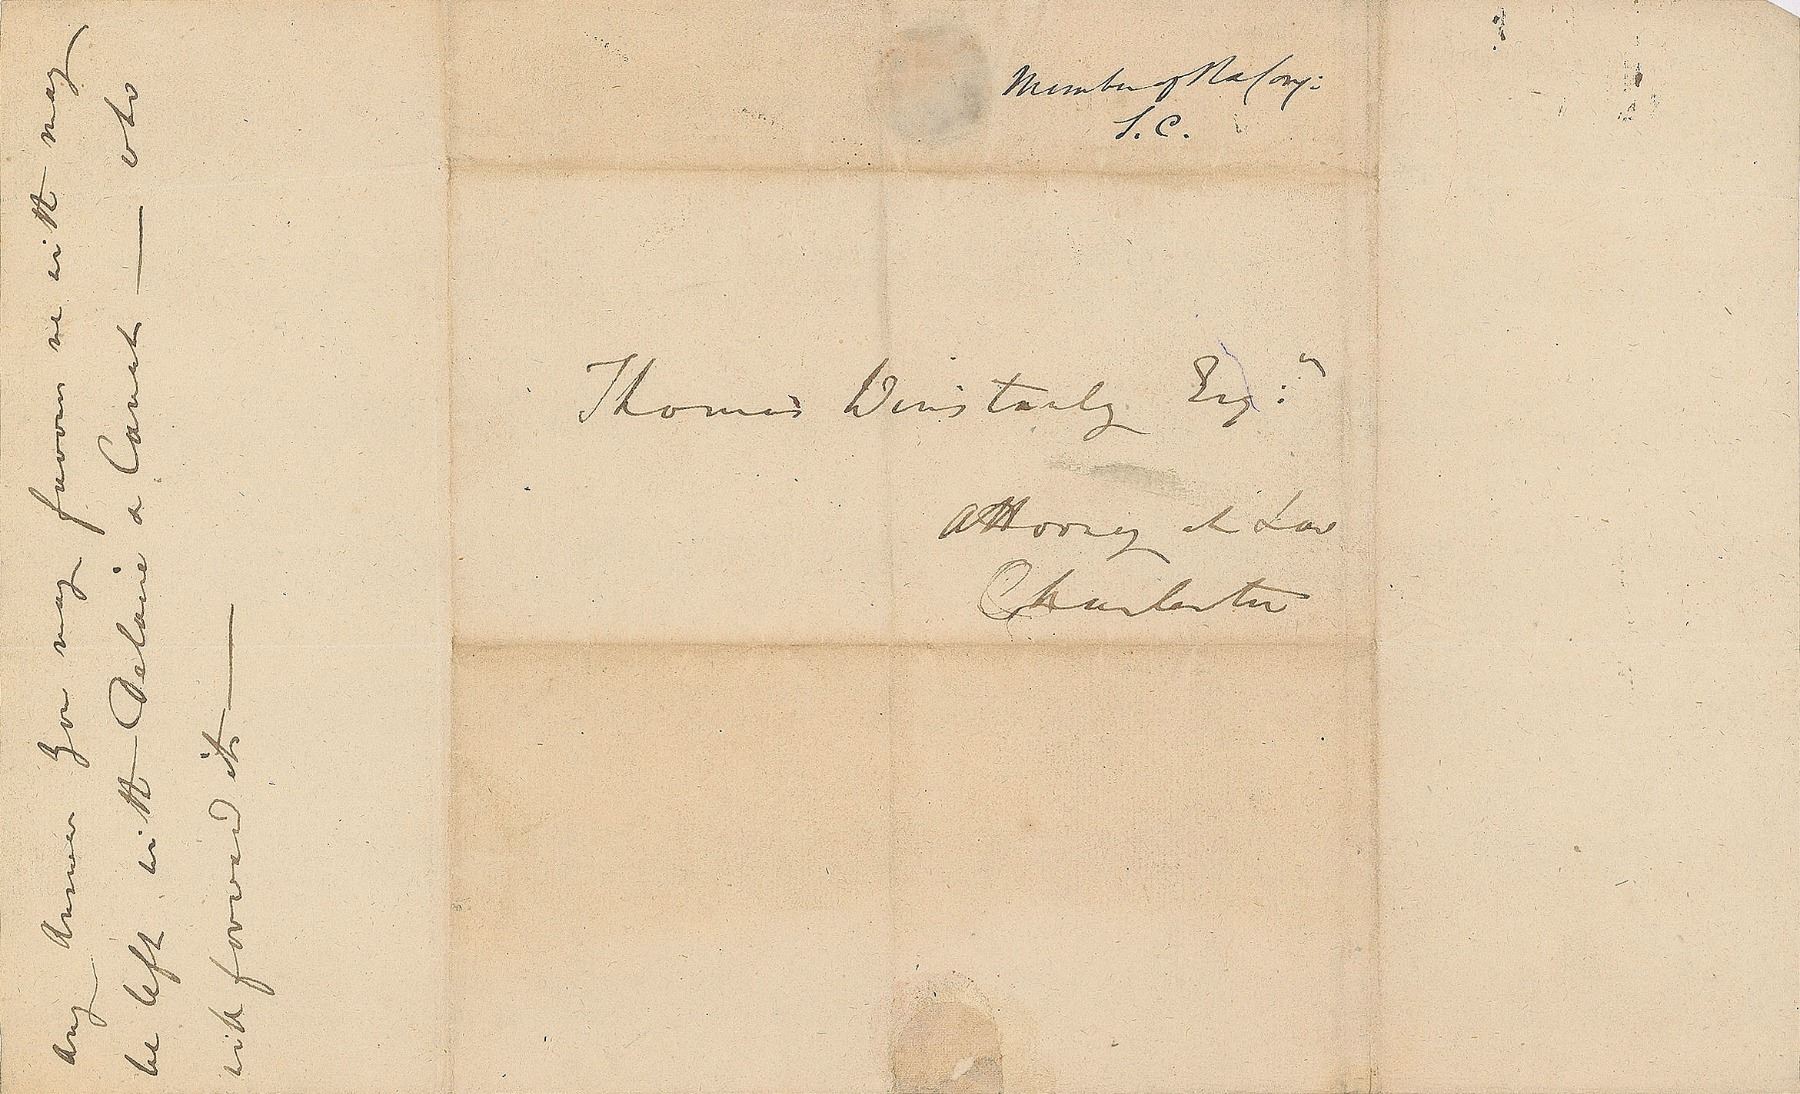 any Answer you may favour me with may
be left with Delaire & Canut — who
will forward it —
Member of Old Cong:
S.C.
Thomas Winstanly Esq:r
Attorney at Law
Charleston